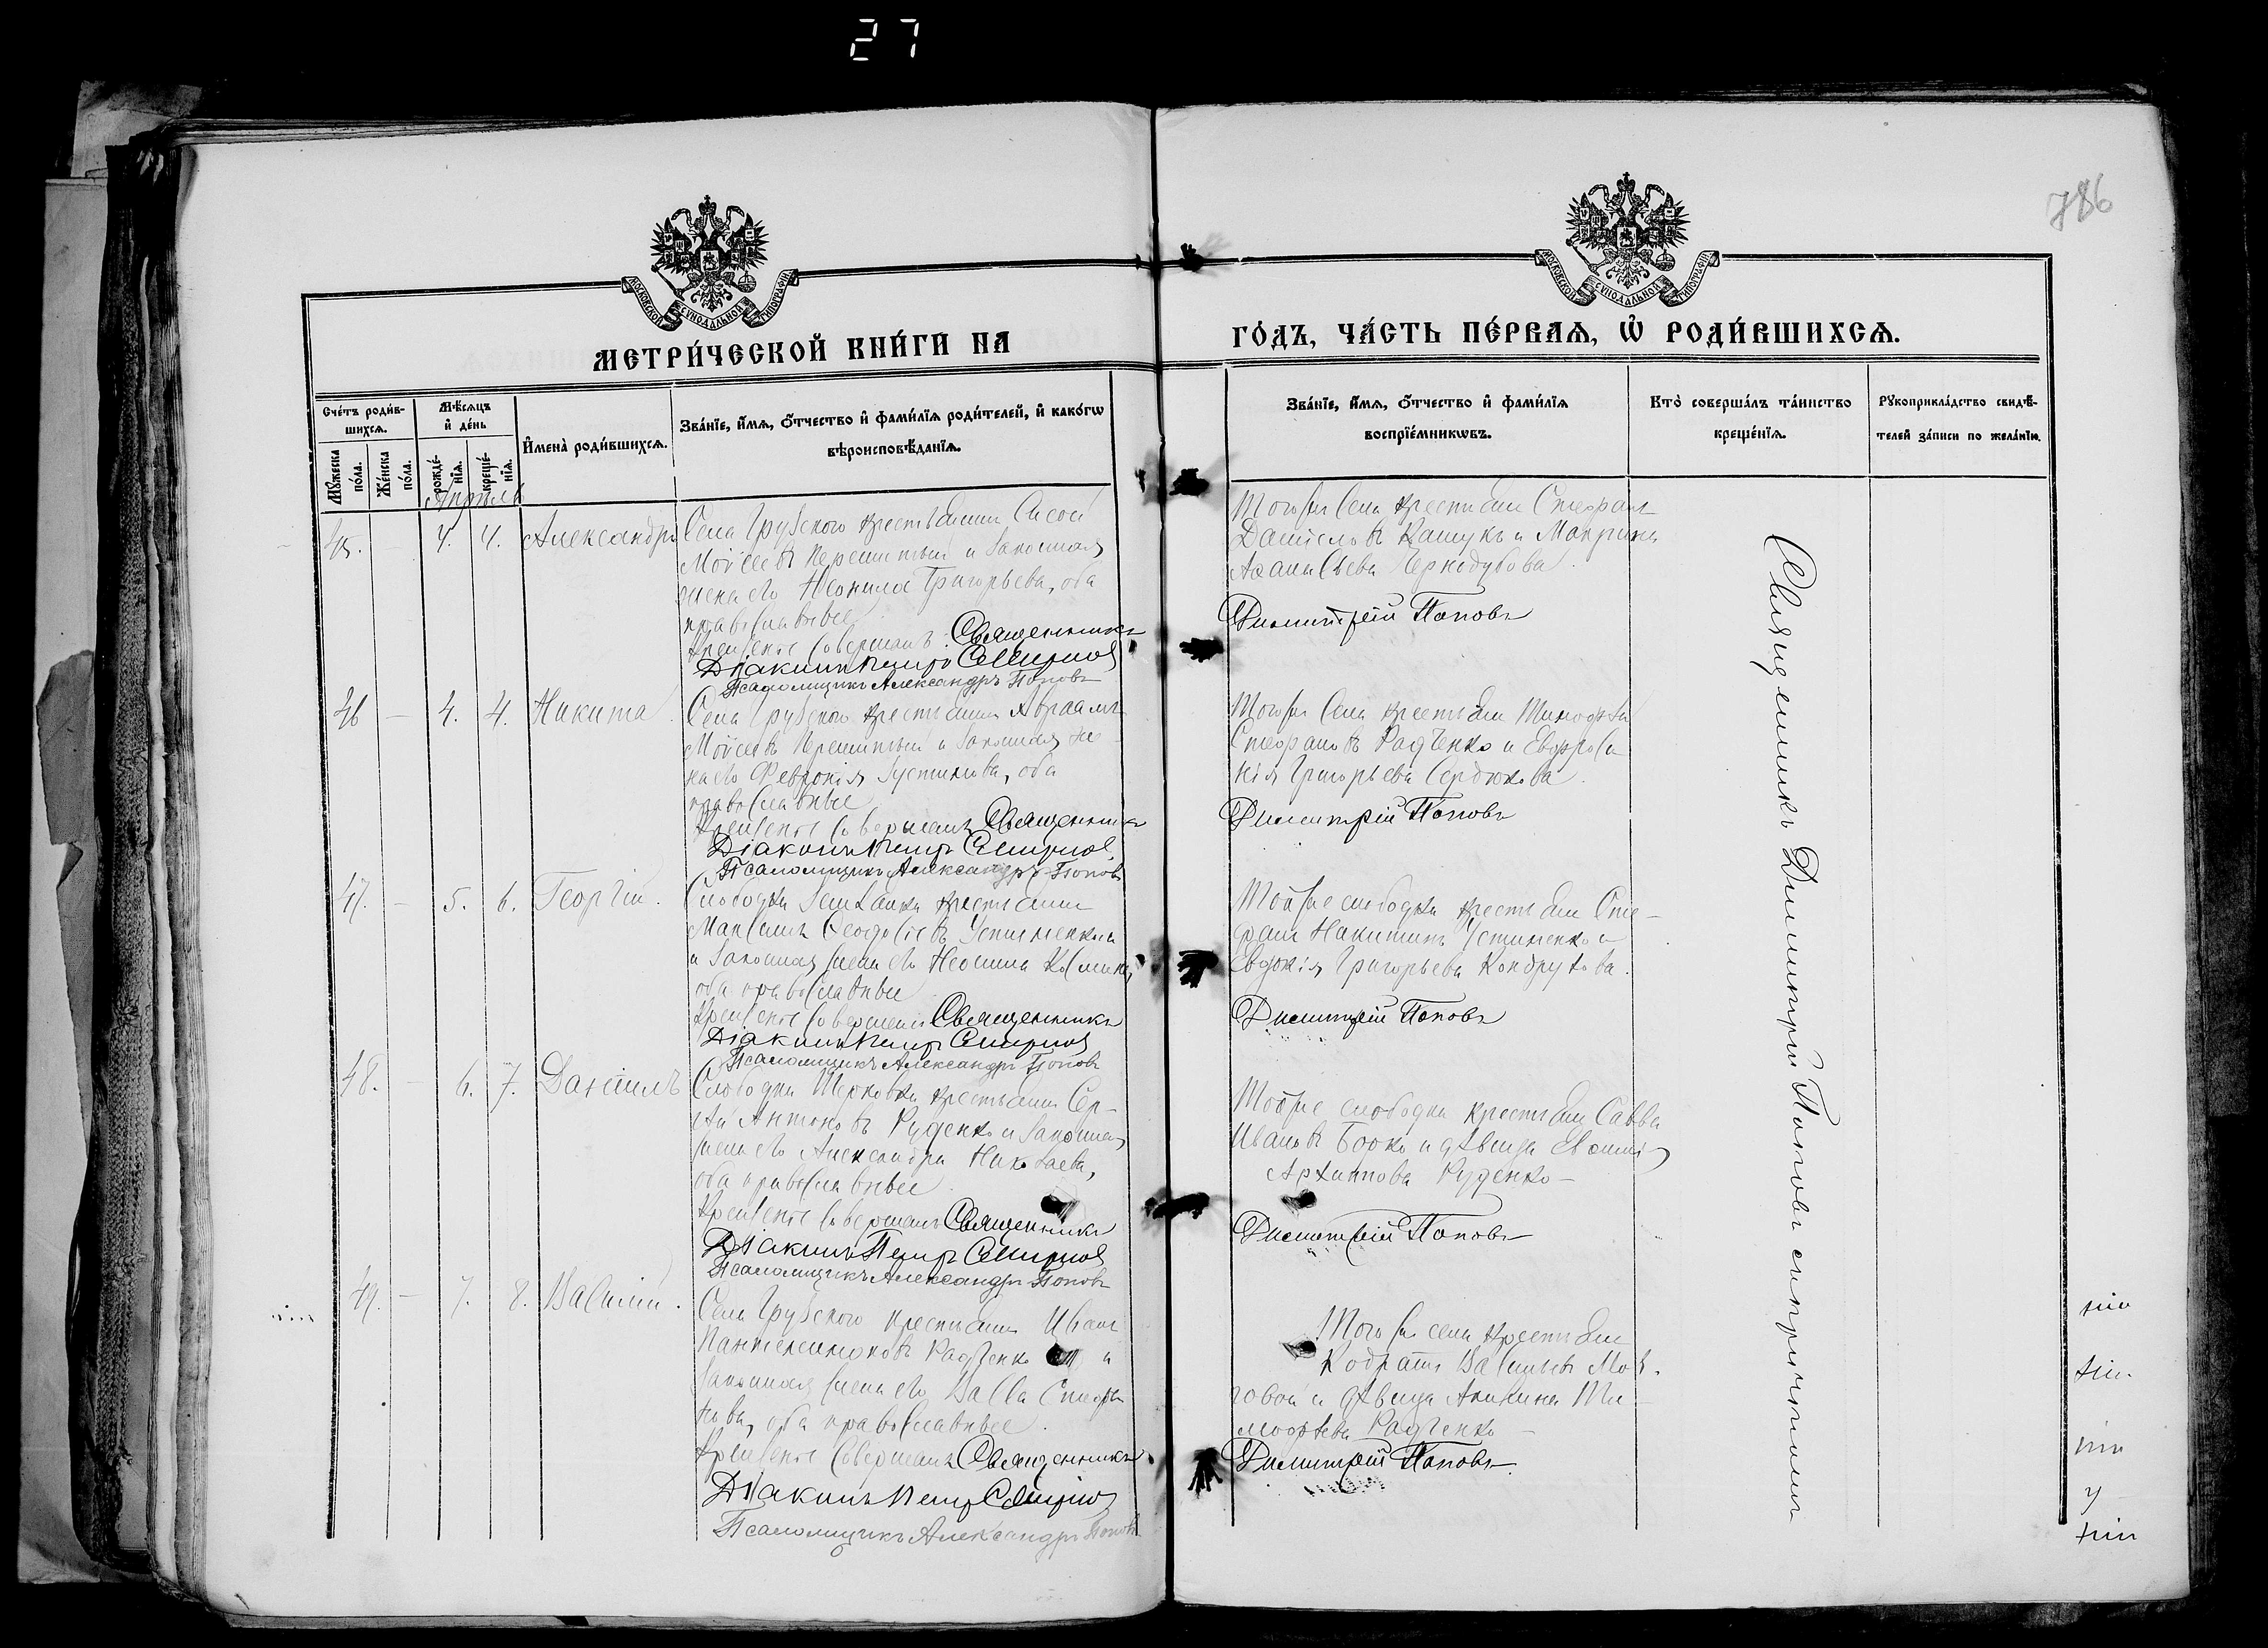 27
786
МОСКОВСКОЙ СѴНОДАЛЬНОЙ ТИПОГРАФІИ
МОСКОВСКОЙ СѴНОДАЛЬНОЙ ТИПОГРАФІИ
МЕТРИ́ЧЕСКОЙ КНИ́ГИ НА
ГО́ДЪ, ЧА́СТЬ ПЕ́РВАѦ, Ѡ҆ РОДИ́ВШИХСѦ.
Сче́тъ роди́в-
шихсѧ.
Мꙋ́жеска по́ла.
Же́нска по́ла.
Мѣ́сѧцъ
и҆ де́нь
рожде́-нїѧ.
креще́-нїѧ.
И҆мена̀ роди́вшихсѧ.
Зва́нїе, и҆́мѧ, ѻ҆́тчество и҆ фами́лїѧ роди́телей, и҆ како́гѡ
вѣроисповѣ́данїѧ.
Зва́нїе, и҆́мѧ, ѻ҆́тчество и҆ фами́лїѧ
воспрїе́мникѡвъ.
Кто̀ соверша́лъ та́инство
креще́нїѧ.
Рꙋкоприкла́дство свидѣ́-
телей за́писи по жела́нїю.
Апрѣль
45. - 4. 4. Александръ
Села Грузского крестьянин Сисой
Мойсеевъ и законная
жена его Неонила Григорьева, оба
православные
Крещенiе совершалъ: Священникъ
Дiаконъ Петръ Смирнов
Псаломщикъ Александръ Попов
Того же села крестьянин Стефан
Данiиловъ Кашукъ и Макрина
Аѳанасьева
Димитрiй Поповъ
46 - 4. 4. Никита
Села Грузского крестьянин Авраамъ
Мойсеевъ и законная же-
на его Феврония Іустинова, оба
православные
Крещенiе совершалъ Священникъ
Дiаконъ Петръ Смирнов
Псаломщикъ Александръ Попов
Того же села крестьянин Тимофей
Стефановъ Радченко и Евфроси
нiя Григорьева Сердюкова
Димитрiй Поповъ
47. - 5. 6. Георгiй.
Слободки крестьянин
Максимъ Ѳеодосiевъ Устименко
и законная жена его Неонила Косьмина,
оба православные
Крещенiе совершалъ Священникъ
Дiаконъ Петръ Смирнов
Псаломщикъ Александръ Попов
Той же слободки крестьянин Сте-
фан Никитинъ Устименко и
Евдокiя Григорьева
Димитрiй Поповъ
48. - 6. 7. Данiилъ
Слободки крестьянин Сер-
гѣй Антоновъ Руденко и законная
жена его Александра Николаева,
оба православные
Крещенiе совершалъ Священникъ
Дiаконъ Петръ Смирнов
Псаломщикъ Александръ Попов
Той же слободки крестьянин Савва
Ивановъ и дѣвица
Архиппова Руденко -
Димитрiй Поповъ
49. - 7. 8. Василiй.
Села Грузского крестьянин Иванъ
Пантелеимоновъ Радченко и
законная жена его Васса Стефа
нова, оба православные
Крещенiе совершалъ Священникъ
Дiаконъ Петръ Смирнов
Псаломщикъ Александръ Попов
Того же села крестьянин
Кодратъ Васильев
и дѣвица Акилина Ти
мофѣева Радченко -
Димитрiй Поповъ
Священникъ Димитрiй Поповъ